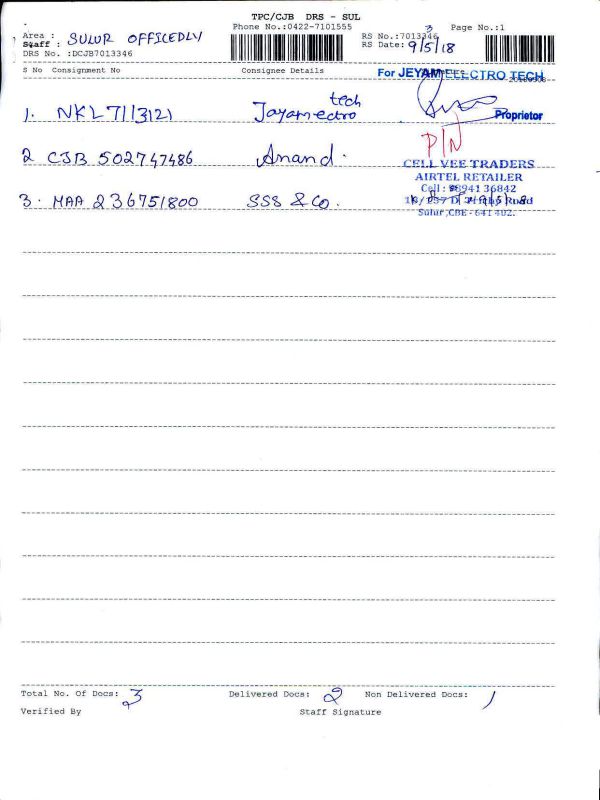 TPC/CJB DRS - SUL
Phone No.:0422-7101555
Page No.:1
Area :
Staff : SULUR OFFICEDLY
DRS No. :DCJB7013346
RS No.:7013346
3
RS Date: 9/5/18
S No Consignment No Consignee Details
For JEYAM ELECTRO TECH
1. NKL 7113121 Jayamectro tech
Proprietor
PIN
2 CJB 502747486 Anand.
CELL VEE TRADERS
AIRTEL RETAILER
Cell : 98941 36842
3. MAA 236751800 SSS & Co.
Road
Sulur, CBE - 641 402.
Total No. Of Docs: 3 Delivered Docs: 2 Non Delivered Docs: 1
Verified By Staff Signature